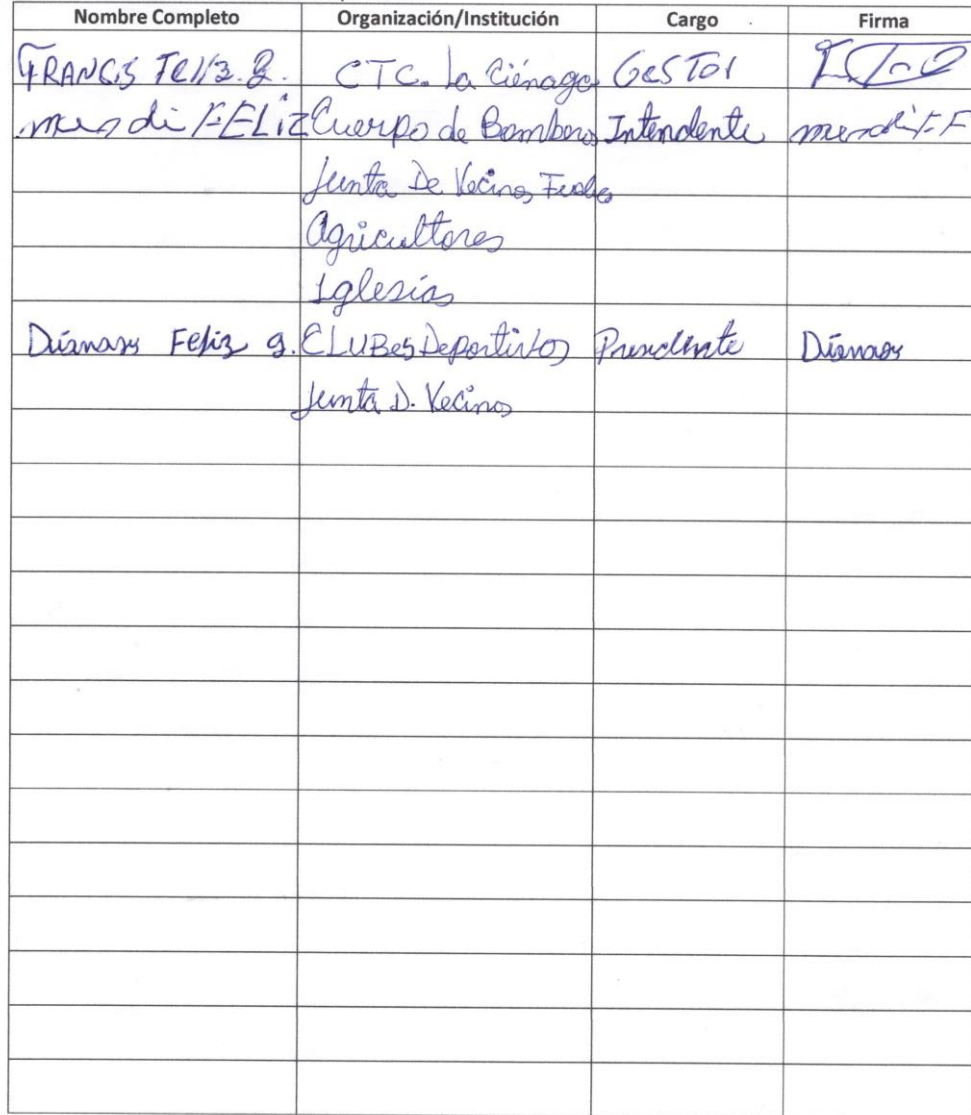 Nombre Completo Organización/Institución Cargo Firma
FRANCIS Feliz CTC. La Ciénaga GesTor
FELIZ Cuerpo de Bomberos Intendente
Junta De Vecinos
Agricultores
Iglesias
Feliz g. CLUBes Deportivos Presidente
Junta D. Vecinos